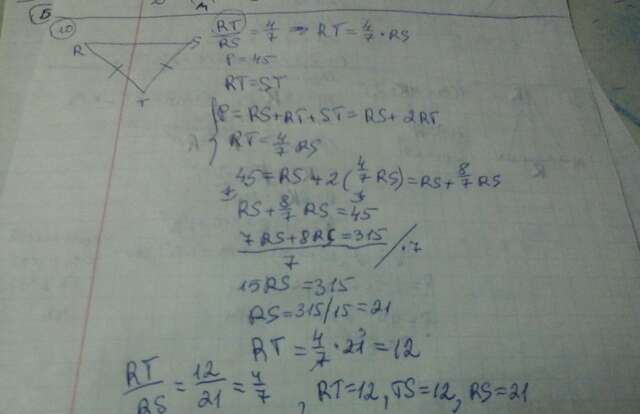 Б
10
R S T
RT/RS = 4/7 ⇒ RT = 4/7 · RS
P = 45
RT = ST
P = RS + RT + ST = RS + 2RT
RT = 4/7 RS
45 = RS + 2(4/7 RS) = RS + 8/7 RS
RS + 8/7 RS = 45
7RS + 8RS = 315 / 7 / · 7
15RS = 315
RS = 315/15 = 21
RT = 4/7 · 21 = 12
RT/RS = 12/21 = 4/7 , RT = 12, TS = 12, RS = 21